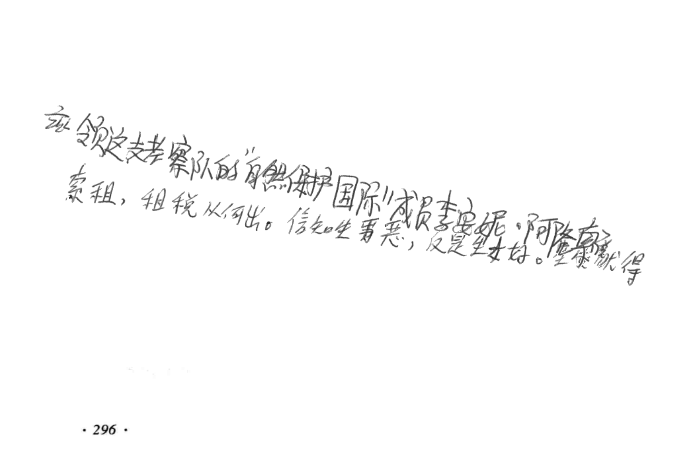 领这支考察队的“自然保护国际”成员李安妮·阿隆
索租，租税从何出。信知生男恶，反是生女好。
· 296 ·